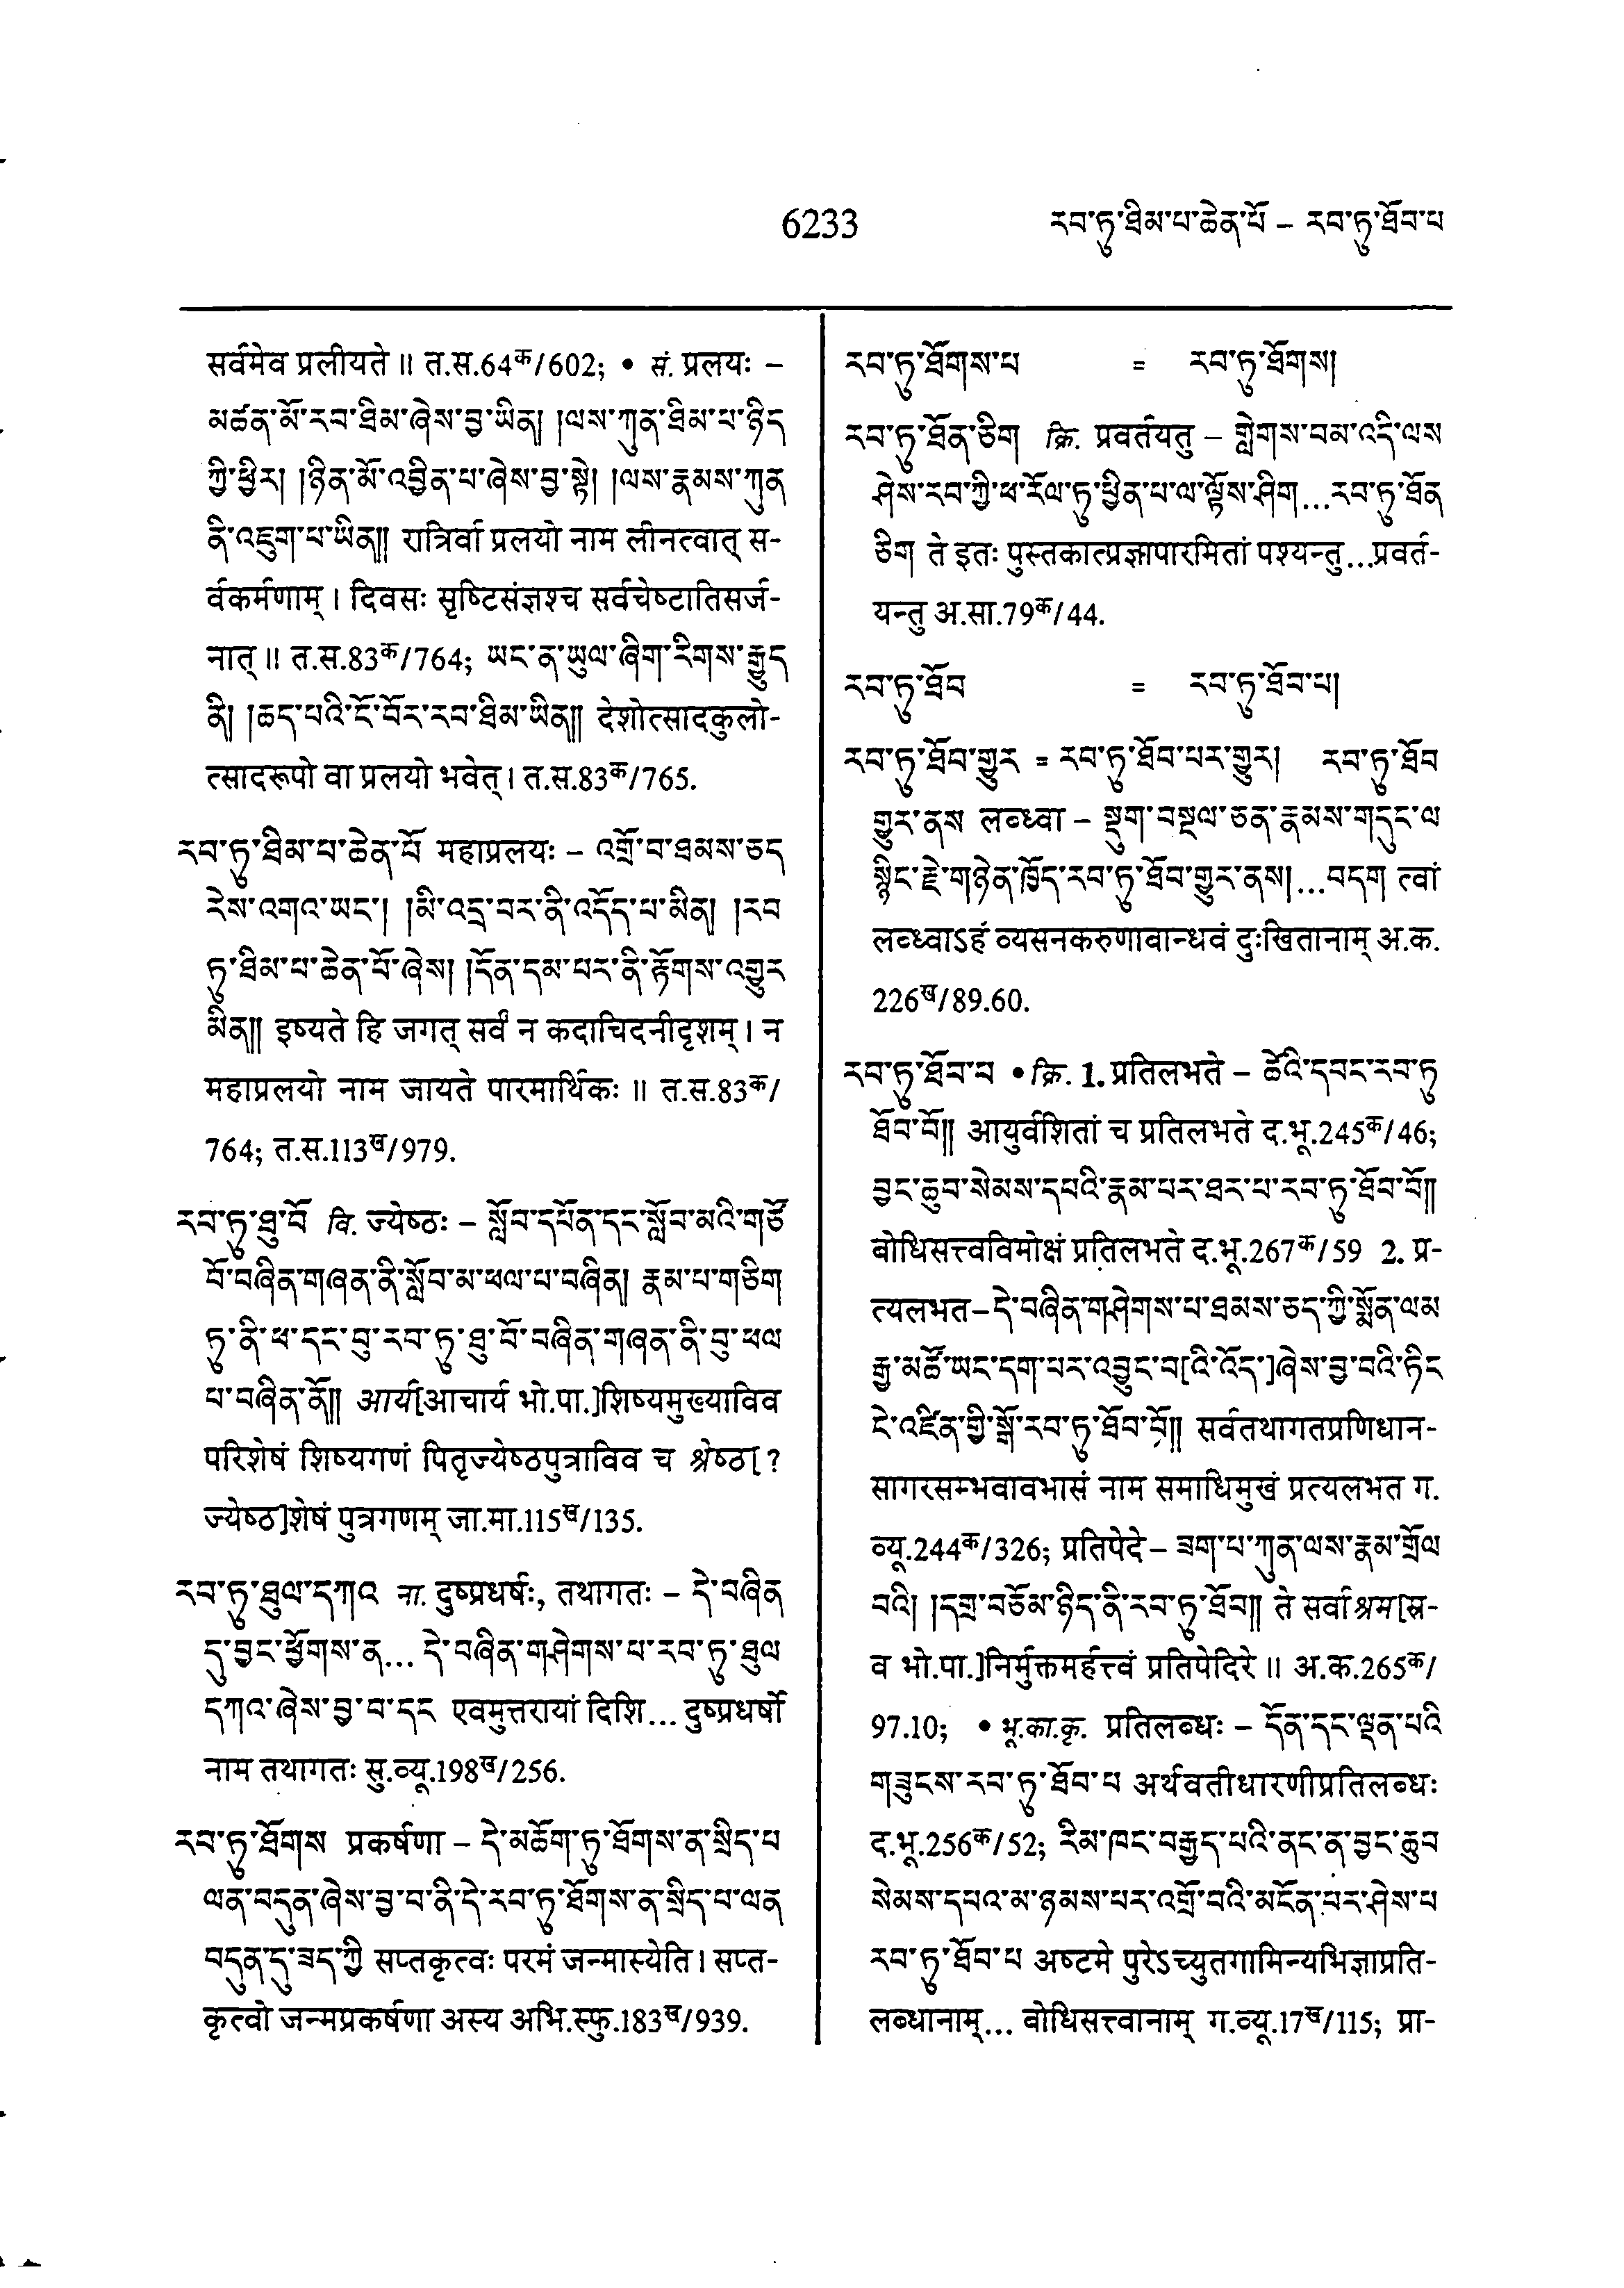 6233
རབ་ཏུ་ཐིམ་པ་ཆེན་པོ – རབ་ཏུ་ཐོབ་པ
सर्वमेव प्रलीयते ॥ त.स.64क/602; • सं. प्रलयः –
མཚན་མོ་རབ་ཐིམ་ཞེས་བྱ་ཡིན། །ལས་ཀུན་ཐིམ་པ་ཉིད
ཀྱི་ཕྱིར། །ཉིན་མོ་འབྱིན་པ་ཞེས་བྱ་སྟེ། །ལས་རྣམས་ཀུན
ནི་འཇུག་པ་ཡིན།། रात्रिर्वा प्रलयो नाम लीनत्वात् स-
र्वकर्मणाम् । दिवसः सृष्टिसंज्ञश्च सर्वचेष्टातिसर्ज-
नात् ॥ त.स.83क/764; ཡང་ན་ཡུལ་ཞིག་རིགས་རྒྱུད
ནི། །ཆད་པའི་ངོ་བོར་རབ་ཐིམ་ཡིན།། देशोत्सादकुलो-
त्सादरूपो वा प्रलयो भवेत् । त.स.83क/765.
རབ་ཏུ་ཐིམ་པ་ཆེན་པོ महाप्रलयः – འགྲོ་བ་ཐམས་ཅད
རེས་འགའ་ཡང་། །མི་འདྲ་བར་ནི་འདོད་པ་མིན། །རབ
ཏུ་ཐིམ་པ་ཆེན་པོ་ཞེས། །དོན་དམ་པར་ནི་རྟོགས་འགྱུར
མིན།། इष्यते हि जगत् सर्वं न कदाचिदनीदृशम् । न
महाप्रलयो नाम जायते पारमार्थिकः ॥ त.स.83क/
764; त.स.113ख/979.
རབ་ཏུ་ཐུ་བོ वि. ज्येष्ठः – སློབ་དཔོན་དང་སློབ་མའི་གཙོ
བོ་བཞིན་གཞན་ནི་སློབ་མ་ཕལ་པ་བཞིན། རྣམ་པ་གཅིག
ཏུ་ནི་ཕ་དང་བུ་རབ་ཏུ་ཐུ་བོ་བཞིན་གཞན་ནི་བུ་ཕལ
པ་བཞིན་ནོ།། आर्य[आचार्य भो.पा.]शिष्यमुख्याविव
परिशेषं शिष्यगणं पितृज्येष्ठपुत्राविव च श्रेष्ठ[?
ज्येष्ठ]शेषं पुत्रगणम् जा.मा.115ख/135.
རབ་ཏུ་ཐུལ་དཀའ ना. दुष्प्रधर्षः, तथागतः – དེ་བཞིན
དུ་བྱང་ཕྱོགས་ན... དེ་བཞིན་གཤེགས་པ་རབ་ཏུ་ཐུལ
དཀའ་ཞེས་བྱ་བ་དང एवमुत्तरायां दिशि... दुष्प्रधर्षो
नाम तथागतः सु.व्यू.198ख/256.
རབ་ཏུ་ཐོགས प्रकर्षणा – དེ་མཆོག་ཏུ་ཐོགས་ན་སྲིད་པ
ལན་བདུན་ཞེས་བྱ་བ་ནི་དེ་རབ་ཏུ་ཐོགས་ན་སྲིད་པ་ལན
བདུན་དུ་ཟད་ཀྱི सप्तकृत्वः परमं जन्मास्येति । सप्त-
कृत्वो जन्मप्रकर्षणा अस्य अभि.स्फु.183ख/939.
རབ་ཏུ་ཐོགས་པ = རབ་ཏུ་ཐོགས།
རབ་ཏུ་ཐོན་ཅིག क्रि. प्रवर्तयतु – གླེགས་བམ་འདི་ལས
ཤེས་རབ་ཀྱི་ཕ་རོལ་ཏུ་ཕྱིན་པ་ལ་ལྟོས་ཤིག...རབ་ཏུ་ཐོན
ཅིག ते इतः पुस्तकात्प्रज्ञापारमितां पश्यन्तु...प्रवर्त-
यन्तु अ.सा.79क/44.
རབ་ཏུ་ཐོབ = རབ་ཏུ་ཐོབ་པ།
རབ་ཏུ་ཐོབ་གྱུར = རབ་ཏུ་ཐོབ་པར་གྱུར། རབ་ཏུ་ཐོབ
གྱུར་ནས लब्ध्वा – སྡུག་བསྔལ་ཅན་རྣམས་གདུང་ལ
སྙིང་རྗེ་གཉེན་ཁྱོད་རབ་ཏུ་ཐོབ་གྱུར་ནས།...བདག त्वां
लब्ध्वाऽहं व्यसनकरुणाबान्धवं दुःखितानाम् अ.क.
226ख/89.60.
རབ་ཏུ་ཐོབ་པ • क्रि. 1. प्रतिलभते – ཚེའི་དབང་རབ་ཏུ
ཐོབ་བོ།། आयुर्वशितां च प्रतिलभते द.भू.245क/46;
བྱང་ཆུབ་སེམས་དཔའི་རྣམ་པར་ཐར་པ་རབ་ཏུ་ཐོབ་བོ།།
बोधिसत्त्वविमोक्षं प्रतिलभते द.भू.267क/59 2. प्र-
त्यलभत – དེ་བཞིན་གཤེགས་པ་ཐམས་ཅད་ཀྱི་སྨོན་ལམ
རྒྱ་མཚོ་ཡང་དག་པར་འབྱུང་བ[འི་འོད་]ཞེས་བྱ་བའི་ཏིང
ངེ་འཛིན་གྱི་སྒོ་རབ་ཏུ་ཐོབ་བོ།། सर्वतथागतप्रणिधान-
सागरसम्भवावभासं नाम समाधिमुखं प्रत्यलभत ग.
व्यू.244क/326; प्रतिपेदे – ཟག་པ་ཀུན་ལས་རྣམ་གྲོལ
བའི། །དགྲ་བཅོམ་ཉིད་ནི་རབ་ཏུ་ཐོབ།། ते सर्वाश्रम[स्र-
व भो.पा.]निर्मुक्तमर्हत्त्वं प्रतिपेदिरे ॥ अ.क.265क/
97.10; • भू.का.कृ. प्रतिलब्धः – དོན་དང་ལྡན་པའི
གཟུངས་རབ་ཏུ་ཐོབ་པ अर्थवतीधारणीप्रतिलब्धः
द.भू.256क/52; རིམ་ཁང་བརྒྱད་པའི་ནང་ན་བྱང་ཆུབ
སེམས་དཔའ་མ་ཉམས་པར་འགྲོ་བའི་མངོན་པར་ཤེས་པ
རབ་ཏུ་ཐོབ་པ अष्टमे पुरेऽच्युतगामिन्यभिज्ञाप्रति-
लब्धानाम्... बोधिसत्त्वानाम् ग.व्यू.17ख/115; प्रा-